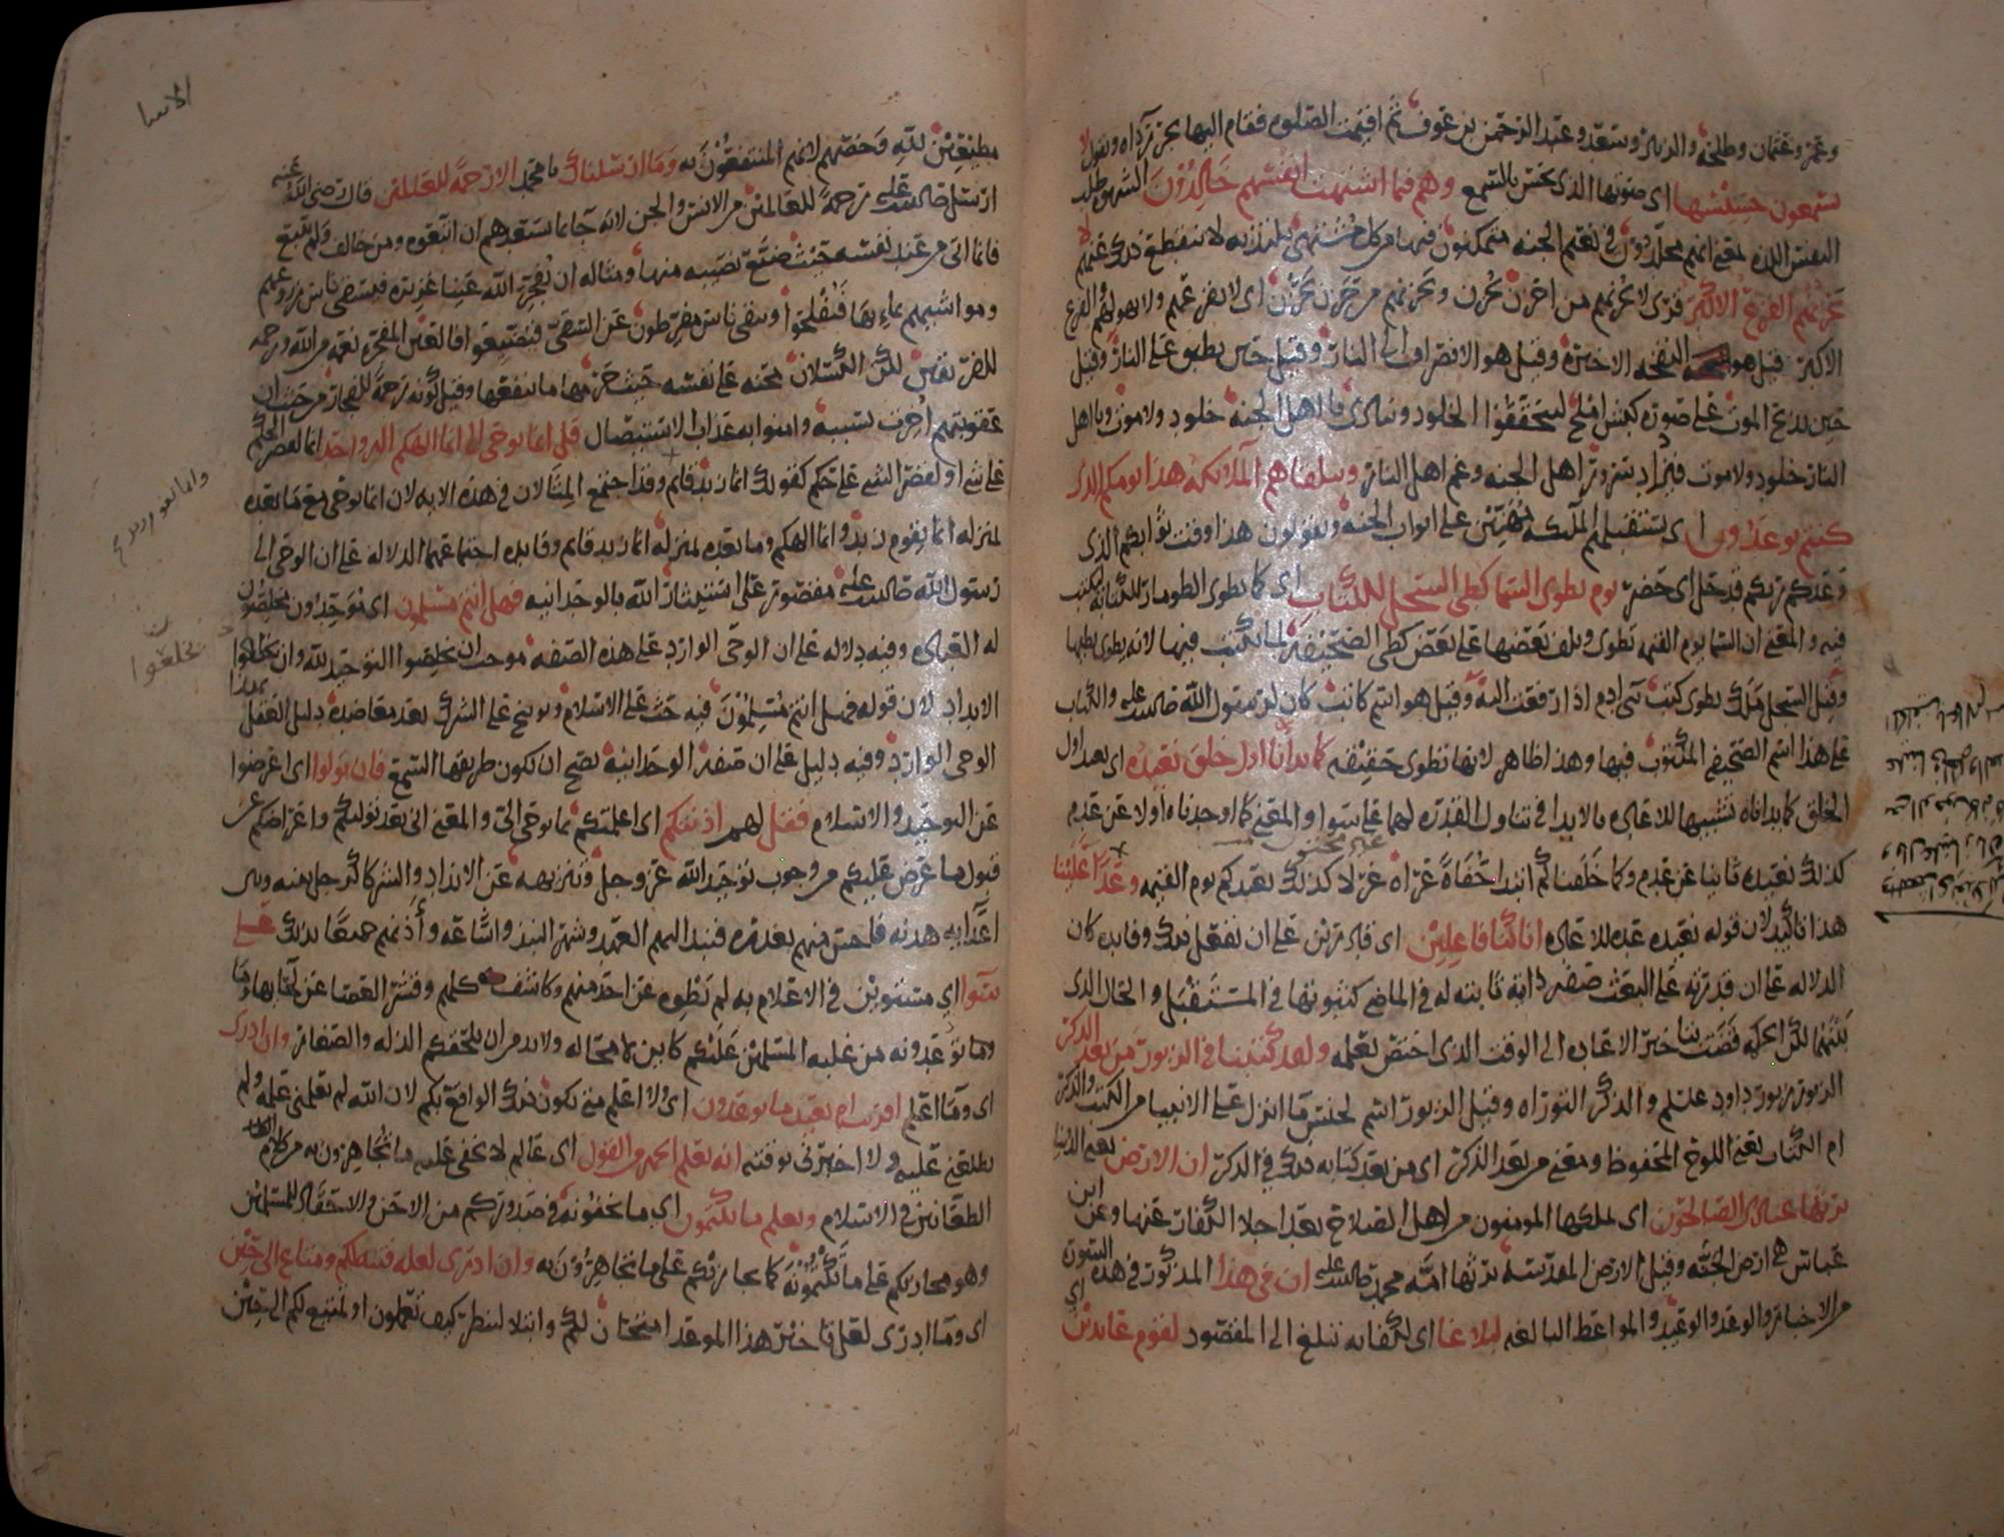 وعمر وعثمان وطلحة والزبير وسعد وعبد الرحمن بن عوف ثم اقيمت الصلوه فقام اليها يجر رداه ويقول لا
يسمعون حسيسها اى صوتها الذى يحس بالسمع وهم فيما اشتهت انفسهم خالدون الشهوه طلب
النفس اللذه لمعنى انهم مخلدون فى نعيم الجنه متمكنون فيها من كل مشتهى يلتذ به لا ينقطع ذلك عنهم لا
يحزنهم الفزع الاكبر قرى لا يحزنهم من احزن يحزن ويحزنهم من حزن يحزن اى لا يغمهم ولا يهولهم الفزع
الاكبر قيل هو النفخه الاخيره وقيل هو الانصراف الى النار وقيل حين يطبق على النار وقيل
حين يذبح الموت على صوره كبش املح ليتحققوا الخلود وينادى يا اهل الجنه خلود ولا موت ويا اهل
النار خلود ولا موت فيزداد سرور اهل الجنه وغم اهل النار وتتلقاهم الملائكه هذا يومكم الذى
كنتم توعدون اى تستقبلهم الملائكه مهنئين على ابواب الجنه ويقولون هذا وقت ثوابكم الذى
وعدكم ربكم قد حل اى حضر يوم نطوى السماء كطى السجل للكتاب اى كما يطوى الطومار للكتابه ليكتب
فيه والمعنى ان السما يوم القيمه تطوى ويلف بعضها على بعض كطى الصحيفه لما يكتب فيها لانه يطوى بطيها
وقيل السجل ملك يطوى كتب بنى ادم اذا رفعت اليه وقيل هو اسم كاتب كان لرسول الله صلى الله عليه والكتاب
على هذا اسم الصحيفه المكتوب فيها وهذا ظاهر لانها تطوى حقيقه كما بدأنا اول خلق نعيده اى نعيد اول
الخلق كما بداناه تشبيها للاعاده بالابدا فى تناول القدره لهما على سوا والمعنى كما اوجدناه اولا عن عدم
كذلك نعيده ثانيا عن عدم وكما خلقناكم ابتدا حفاة عراه غرلا كذلك نعيدكم يوم القيمه وعدا علينا
هذا تاكيد لان قوله نعيده عده للاعاده انا كنا فاعلين اى قادرين على ان نفعل ذلك وفايده كان
الدلاله على ان قدرته على البعث صفه ذاته ثابته له فى الماضى كثبوتها فى المستقبل والحال الذى
بينهما لكن الحكمه قضت بتاخير الاعاده الى الوقت الذى اختص بعلمه ولقد كتبنا فى الزبور من بعد الذكر
الزبور زبور داود عليه السلم والذكر التوراه وقيل الزبور اسم لجنس ما انزل على الانبيا من الكتب والذكر
ام الكتاب يعنى اللوح المحفوظ ومعنى من بعد الذكر اى من بعد كتابه ذلك فى الذكر ان الارض يعنى الدنيا
يرثها عبادى الصالحون اى يملكها المومنون من اهل الصلاح بعد اجلا الكفار عنها وعن ابن
عباس هى ارض الجنه وقيل الارض المقدسه يرثها امة محمد صلى الله عليه ان فى هذا المذكور فى هذه السوره
من الاخبار والوعد والوعيد والمواعظ البالغه لبلاغا اى لكفايه تبلغ الى المقصود لقوم عابدين اى
الاسا
مطيعين لله وخصهم لانهم المنتفعون به وما ارسلناك يا محمد الا رحمة للعالمين قال رضى الله عنه
ارسل صلى الله عليه رحمة للعالمين من الانس والجن لانه جا بما يسعدهم ان اتبعوه ومن خالف ولم يتبع
فانما اتى من عند نفسه حيث ضيع نصيبه منها ومثاله ان يفجر الله عينا غزيره فيسقى ناس زروعهم
ومواشيهم بمايها فيفلحوا ويبقى ناس مفرطون عن السقى فيضيعوا فالعين المفجره نعمه من الله ورحمه
للفريقين لكن الكسلان محنه على نفسه حيث حرمها ما ينفعها وقيل كونه رحمة للفجار من حيث ان
عقوبتهم اخرت بسببه وامنوا به عذاب الاستيصال قل انما يوحى الى انما الهكم اله واحد انما لقصر الحكم
على شى او لقصر الشى على حكم كقولك انما زيد قايم وقد اجتمع المثالان فى هذه الايه لان انما يوحى مع ما بعده
بمنزله انما يقوم زيد وانما الهكم وما بعده بمنزله انما زيد قايم وفايده اجتماعهما الدلاله على ان الوحى الى
رسول الله صلى الله عليه مقصور على استيثار الله بالوحدانيه فهل انتم مسلمون اى موحدون مخلصون
له العباده وفيه دلاله على ان الوحى الوارد على هذه الصفه موجب ان يخلصوا التوحيد لله وان يخلعوا
يخلعوا
الانداد لان قوله فهل انتم مسلمون فيه حث على الاسلام وتوبيخ على الشرك بعد معاضده دليل العقل
الوحى الوارد وفيه دليل على ان صفه الوحدانيه يصح ان تكون طريقها السمع فان تولوا اى اعرضوا
عن التوحيد والاسلام فقل لهم اذنتكم اى اعلمتكم بما يوحى الى والمعنى انى بعد توليكم واعراضكم عن
قبول ما عرض عليكم من وجوب توحيد الله عز وجل وتنزيهه عن الانداد والشركا كرجل بينه وبين
اعدايه هدنه فاحس منهم بغدره فنبذ اليهم العهد وشهر النبذ واشاعه وآذنهم جميعا بذلك على
سوا اي مستوين فى الاعلام به لم نطوه عن احد منهم وكاشف كلهم وقشر العصا عن لحايها وما
وما توعدونه من غلبه المسلمين عليكم كاين لا محاله ولا بد من ان يلحقكم الذله والصغار وان ادرى
اى وما اعلم اقريب ام بعيد ما توعدون اى ولا اعلم متى يكون ذلك الواقع بكم لان الله لم يعلمنى علمه ولم
يطلعنى عليه ولا اخبرنى بوقته انه يعلم الجهر من القول اى عالم لا يخفى عليه ما تجاهرون به من كلام
الطعانين فى الاسلام ويعلم ما تكتمون اى ما تخفونه فى صدوركم من الاحن والاحقاد للمسلمين
وهو مجازيكم على ما تكتمونه كما يجازيكم على ما تجاهرون به وان ادرى لعله فتنة لكم ومتاع الى حين
اى وما ادرى لعل تاخير هذا الموعد امتحان لكم وابتلا لينظر كيف تعملون او تمتيع لكم الى حين